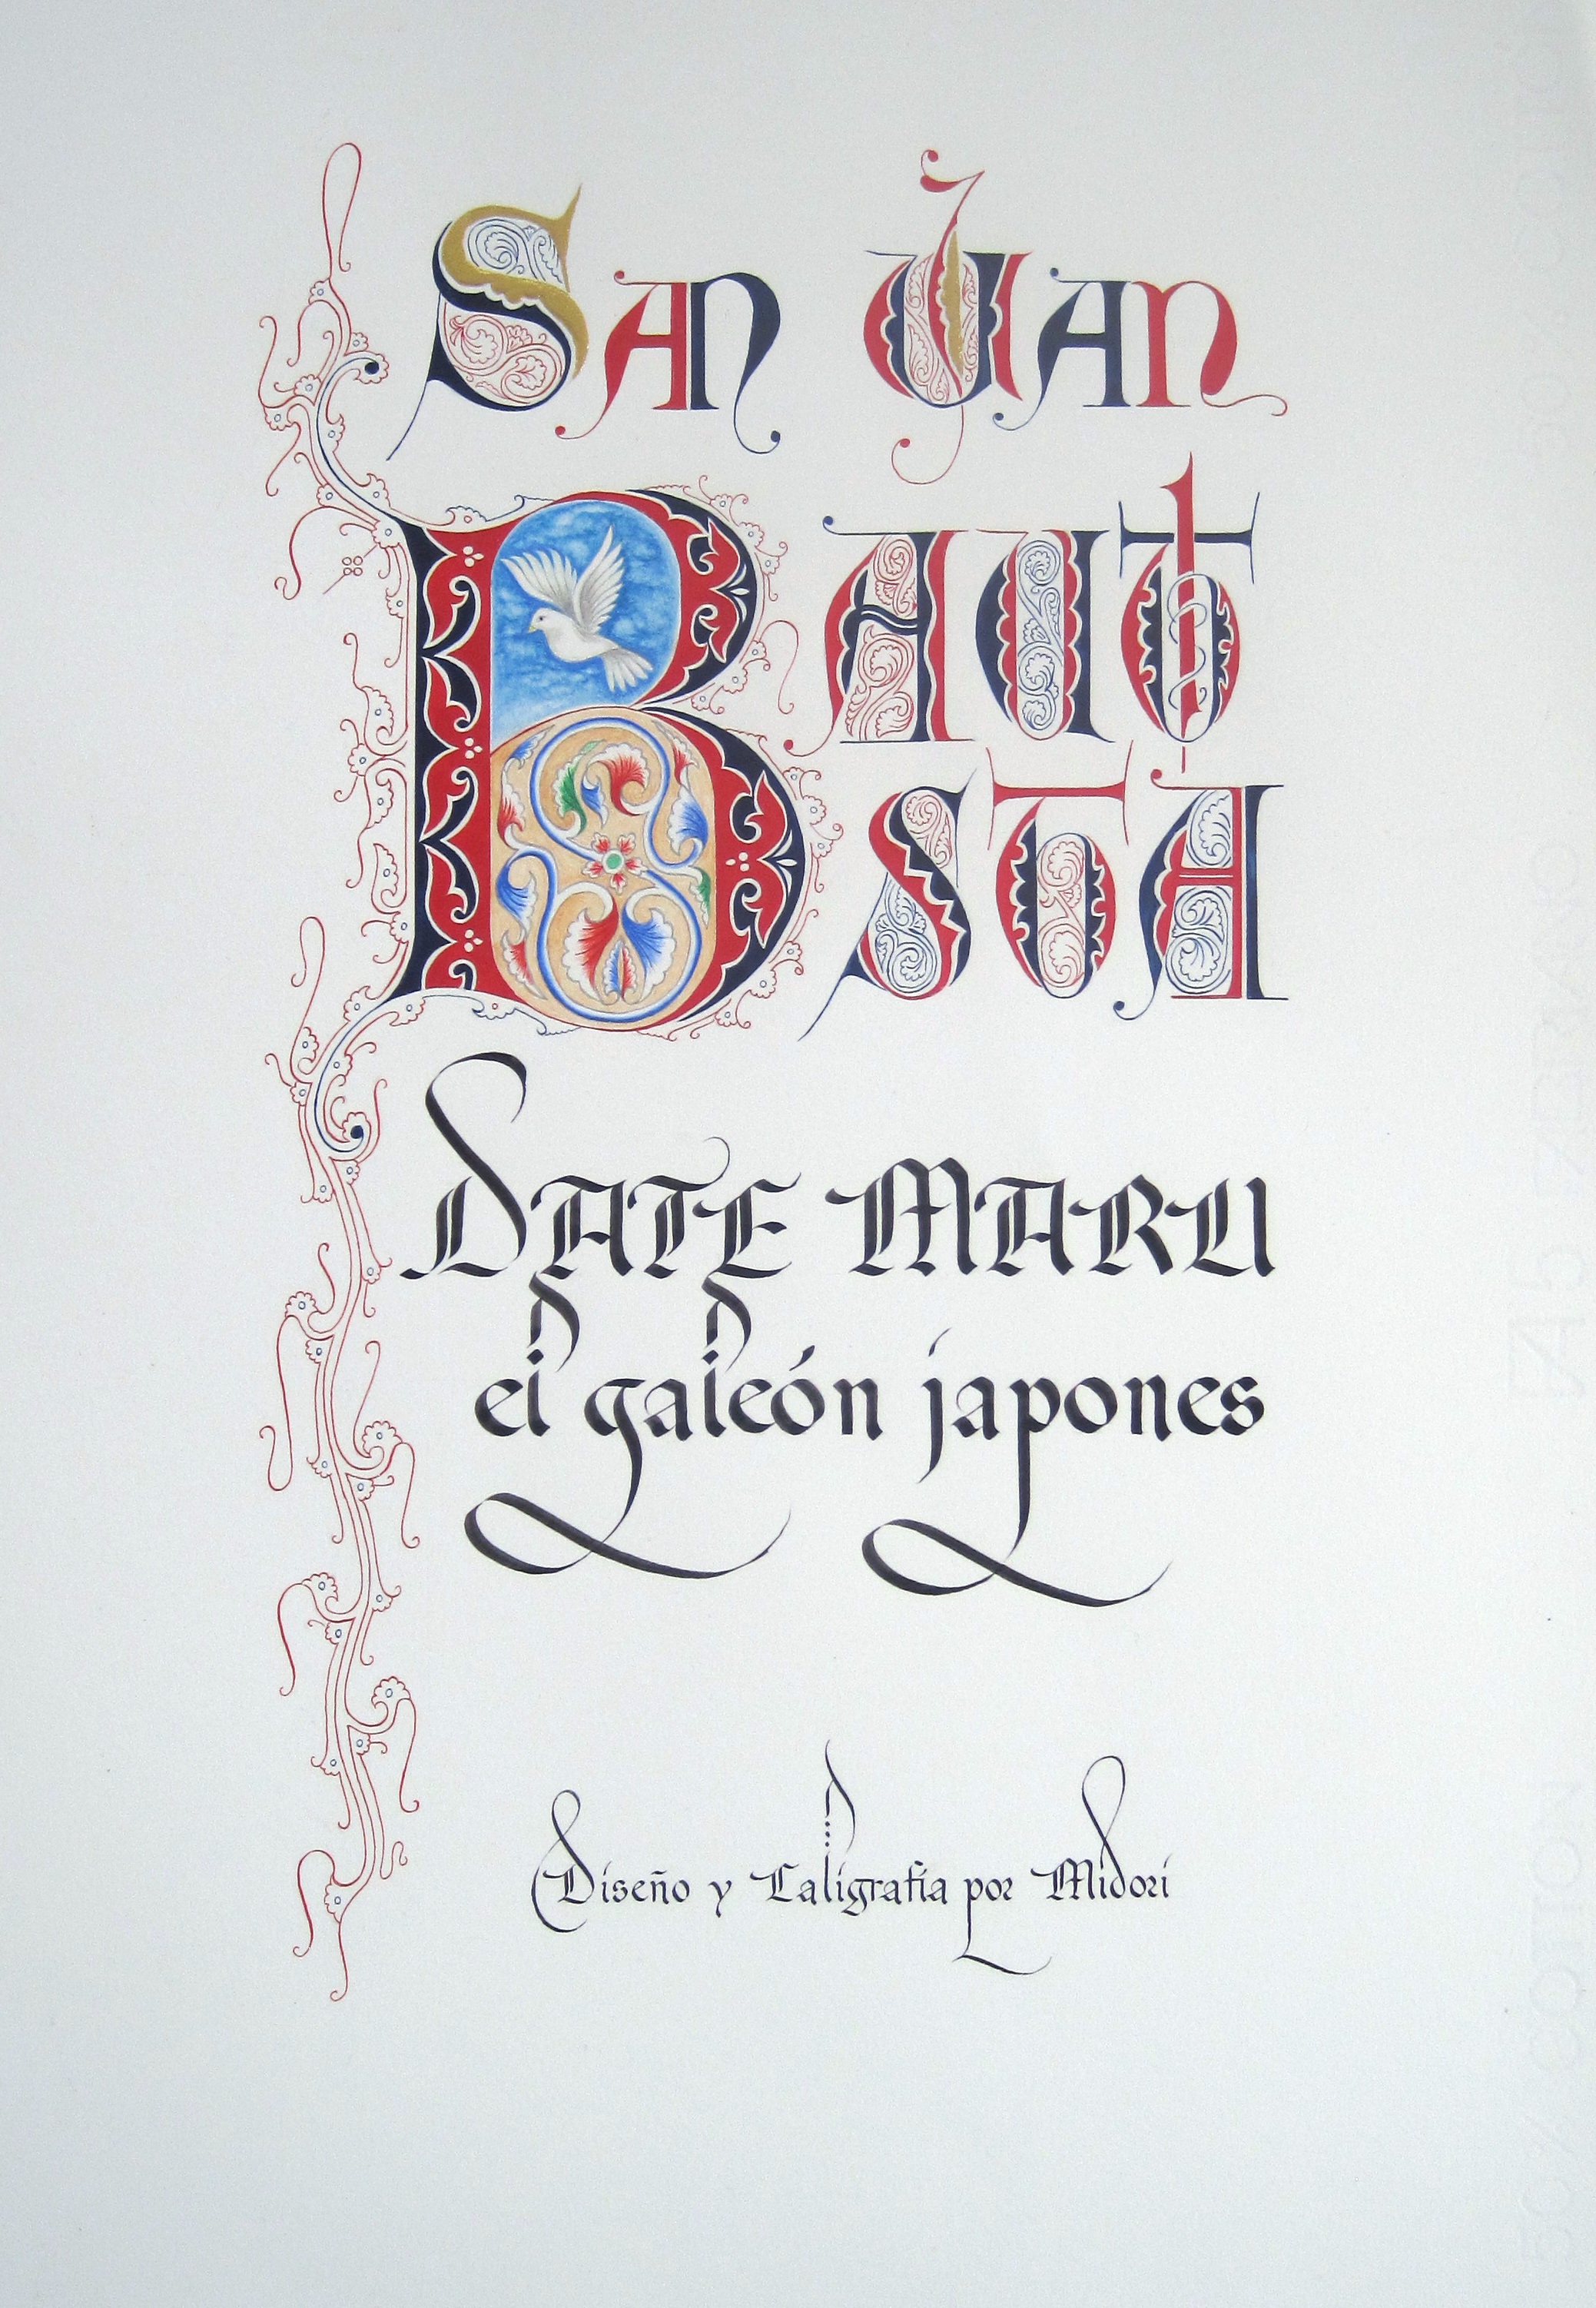 SAN JUAN
BAUTI
STA
DATE MARU
el galeón japones
Diseño y Caligrafia por Midori